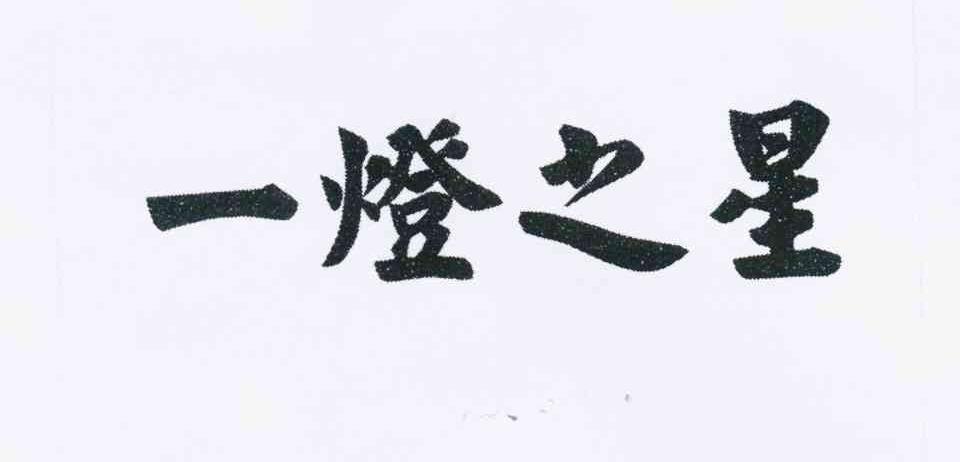 一燈之星